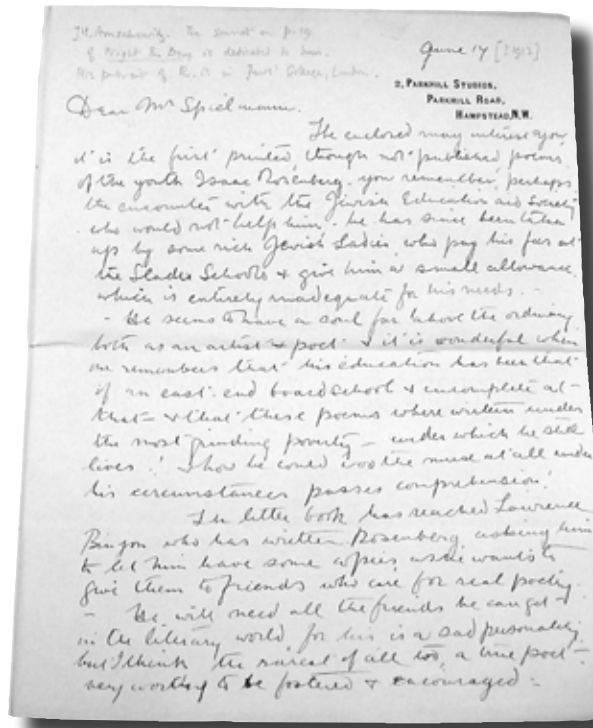 J.H. Amschewitz. The sonnet on p. 19
of Night & Day is dedicated to him.
His portrait of R. is in Jews' College, London.
June 17 [1912]
2, PARKHILL STUDIOS,
PARKHILL ROAD,
HAMPSTEAD, N.W.
Dear Mr Spielmann.
The enclosed may interest you,
it is the first printed, though not published poems
of the youth Isaac Rosenberg. you remember, perhaps
the encounter with the Jewish Education aid Society
who would not help him. he has since been taken
up by some rich Jewish Ladies who pay his fees at
the Slade Schools & give him a small allowance
which is entirely inadequate for his needs. -
- He seems to have a soul far above the ordinary
both as an artist & poet & it is wonderful when
one remembers that his education has been that
of an east end board school & incomplete at
that - & that these poems where written under
the most grinding poverty - under which he still
lives! how he could woo the muse at all under
his circumstances passes comprehension!
The letter book has reached Lawrence
Binyon who has written Rosenberg asking him
to let him have some copies as he wants to
give them to friends who care for real poetry.
- He will need all the friends he can get -
in the literary world for his is a sad personality
but I think the rarest of all too, a true poet -
very worthy to be fostered & encouraged -